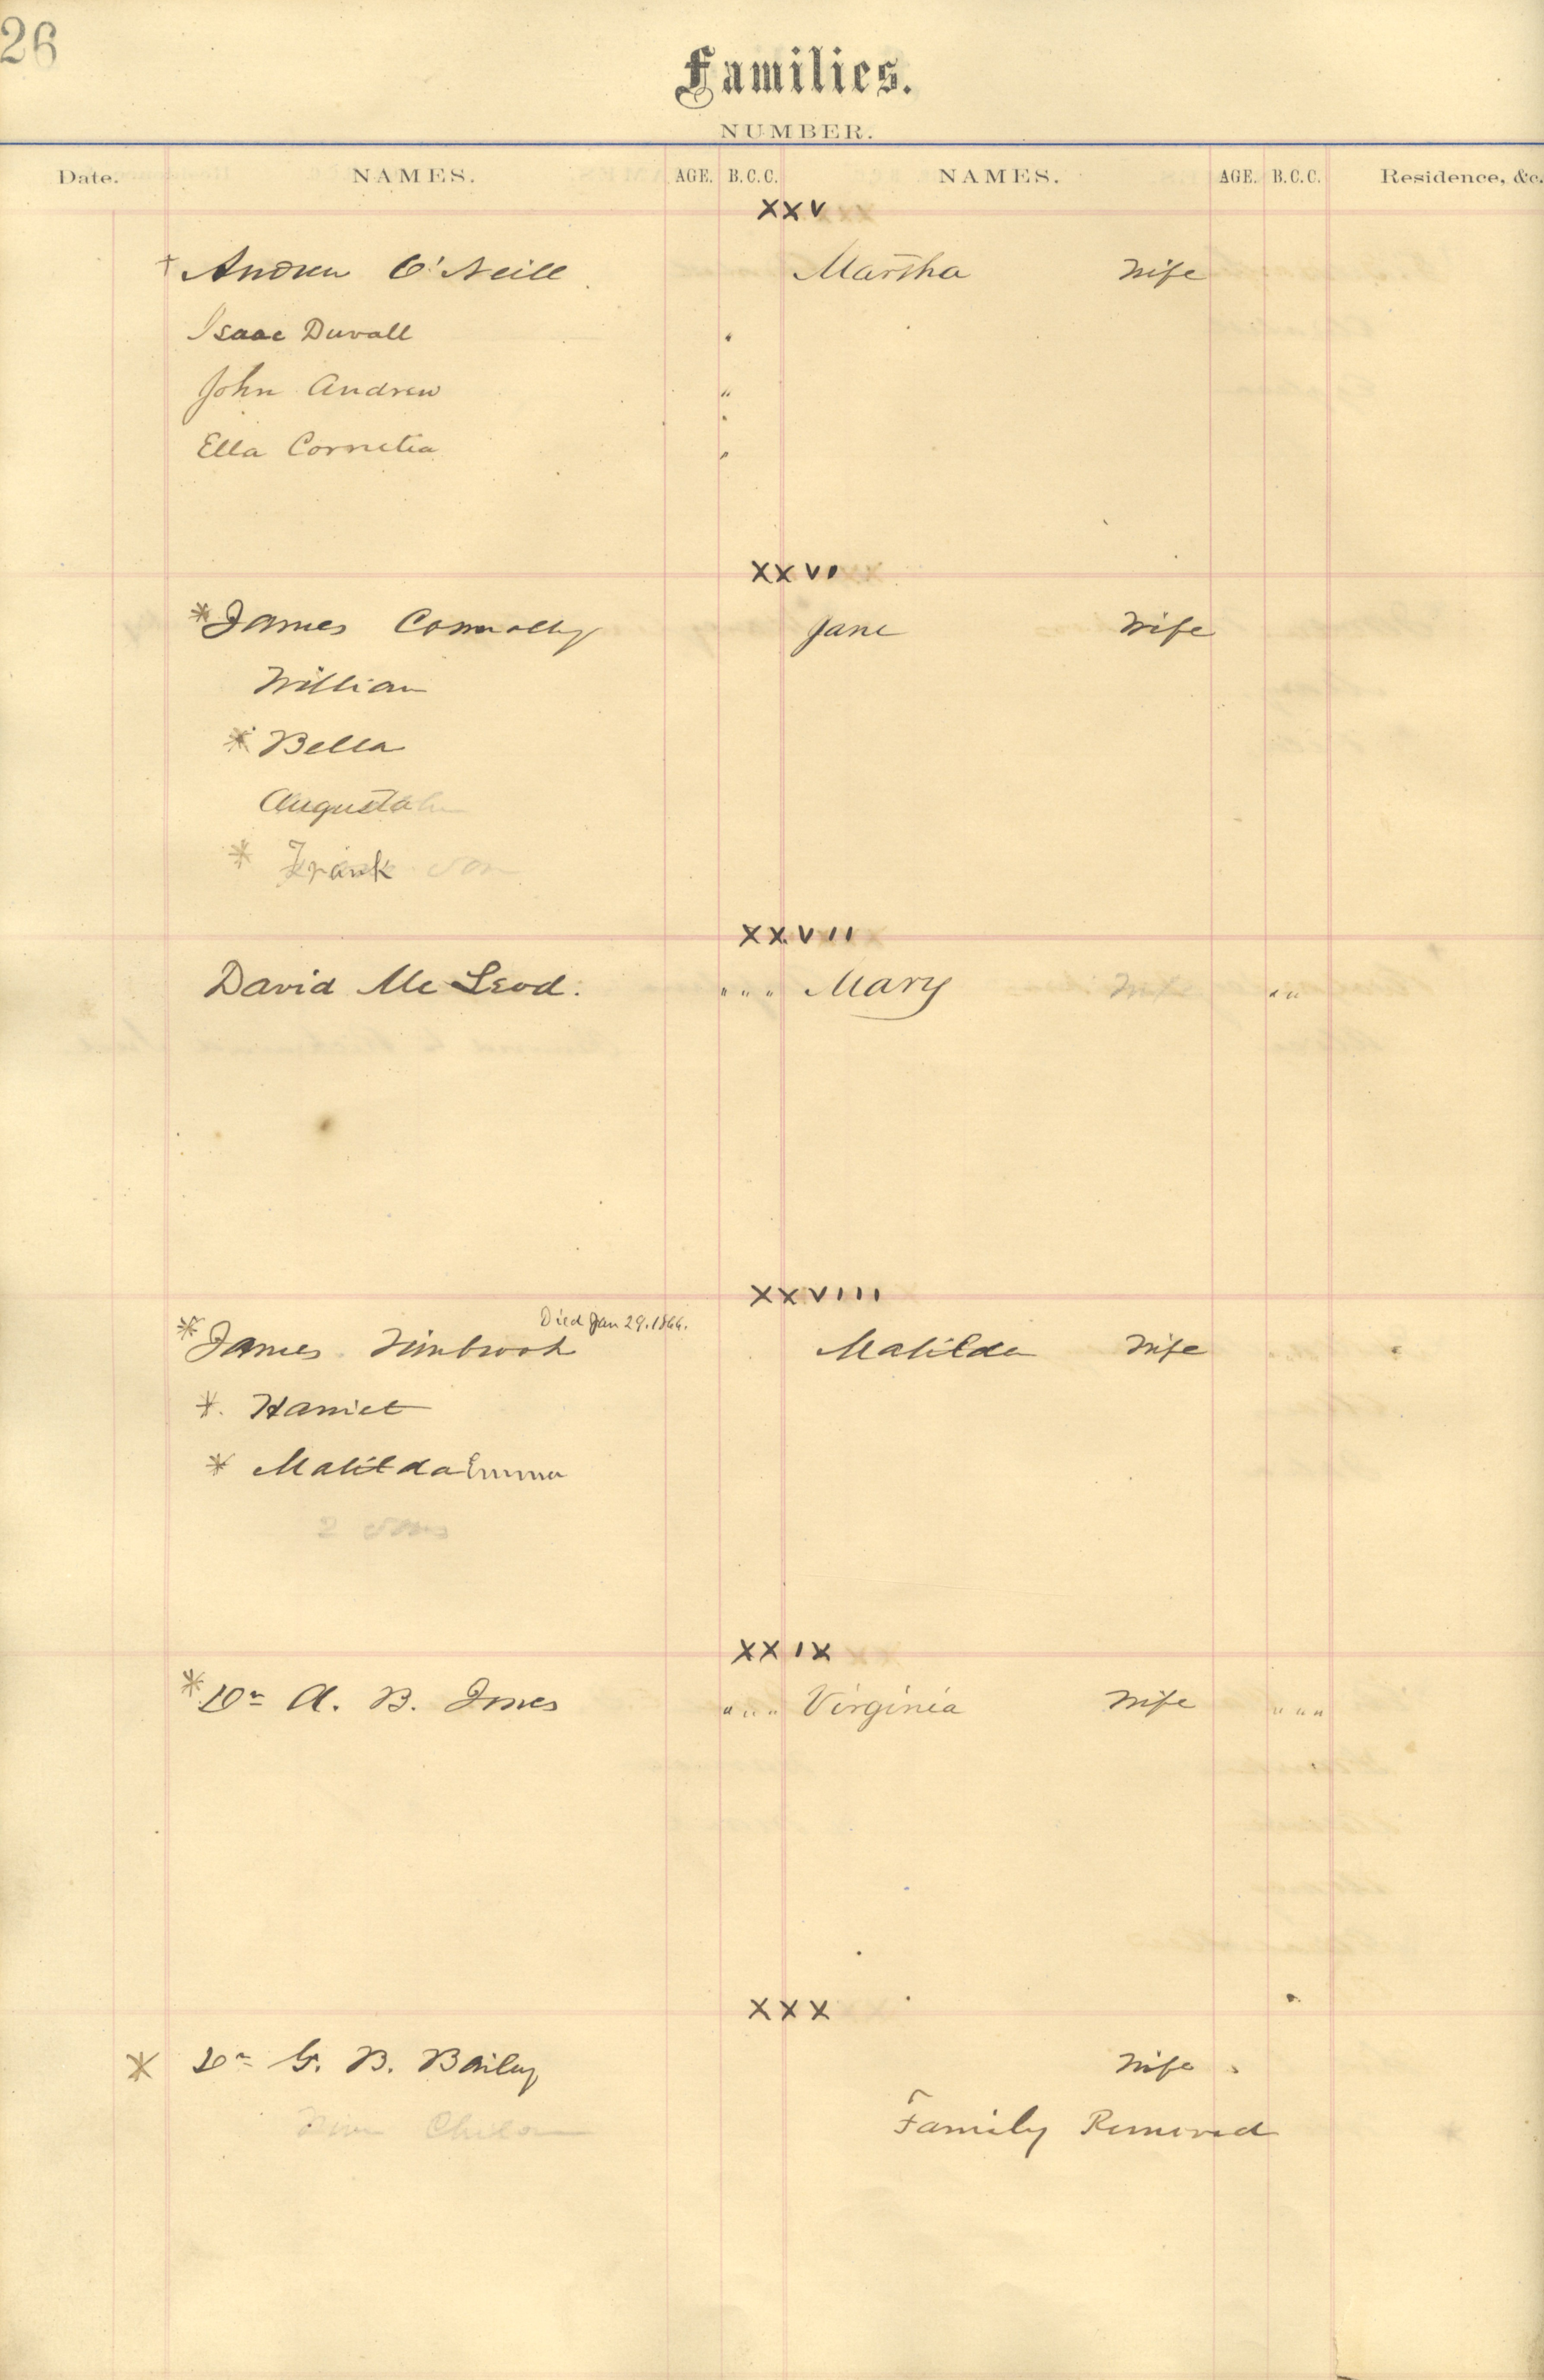 26
Families.
NUMBER.
Date. NAMES. AGE. B.C.C. NAMES. AGE. B.C.C. Residence, &c.
XXV
† Andrew O'Neill Martha Wife
Isaac Duvall "
John Andrew "
Ella Cornelia "
XXVI
* James Connolly Jane Wife
William
* Bella
Augusta
* Frank son
XXVII
David McLeod. " " " Mary Wife " "
XXVIII
Died Jan 29. 1866.
* James Timbrook Matilda Wife
* Harriet
* Matilda Emma
2 sons
XXIX
* Dr A. B. Jones " " " Virginia Wife " " "
XXX
* Dr G. B. Bailey Wife
Family Removed